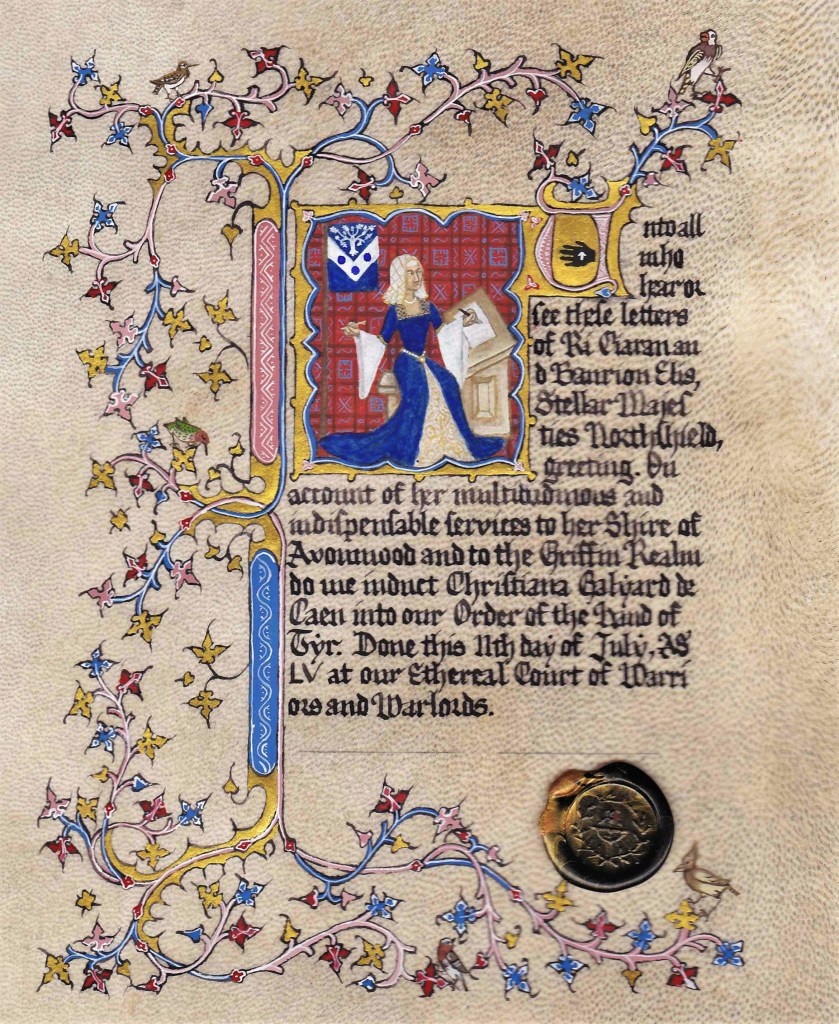 Unto all
who
hear or
see these letters
of Ri Ciaran an
d Banrion Elis,
Stellar Majes
ties Northshield,
greeting. On
account of her multitudinous and
indispensable services to her Shire of
Avonwood and to the Griffin Realm
do we induct Christiana Galyard de
Caen into our Order of the Hand of
Tyr. Done this 11th day of July, AS
LV at our Ethereal Court of Warri
ors and Warlords.